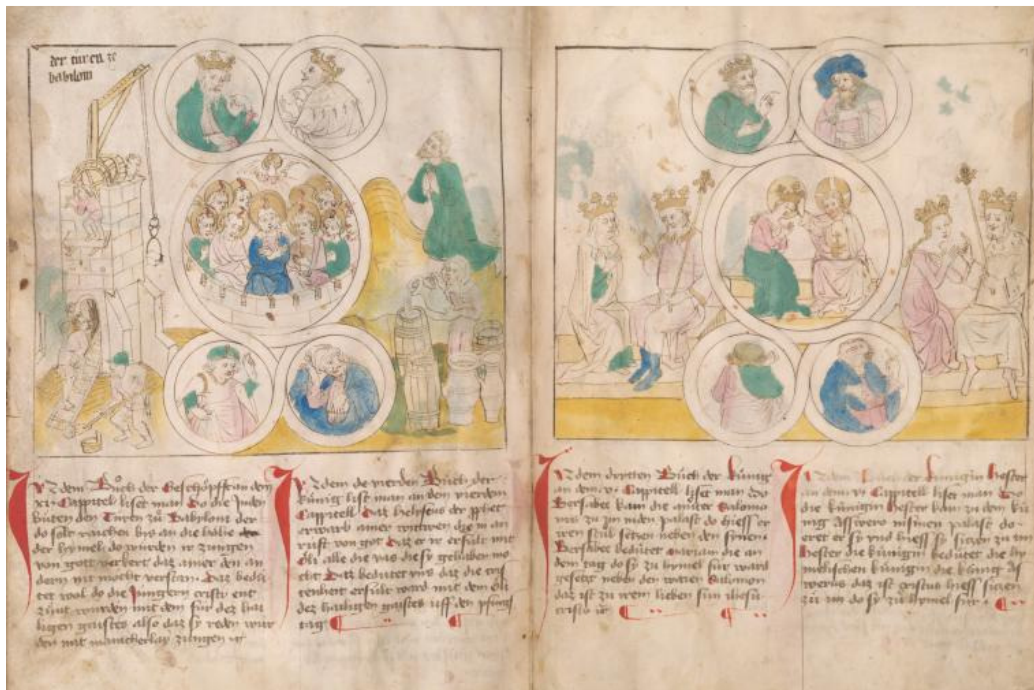 der turen ze
babilom
Uz dem Buoch der Geschöpff an dem
xi Cappitell liset man Do die Juden
buten den Turen zü Babylonz der
do solt raichen bis an die höhe
der hymel do wurden ir zungen
von gott verkert daz ainer den an
dern nit mocht verstan Daz bedü
tet wol do die Jungern cristi ent
zünt wurden mit dem für dez hai
ligen gaistes also daz sy reden wur
den mit mancherlay zungen
Uz dem de vierden Büch der
künig list man an dem vierden
Cappitell Daz helyseus der pphet
erwarb ainer witwen die in an
rüft von got daz er ir erfült mit
öli alle die vas die sy gehaben mo
cht Daz bedütet vns daz die cris
tenhait erfült ward mit dem öli
dez hailigen gaistes vff den pfing
tag
Uz dem dryten Büch der künig
an dem Cappitell liset man Do
Bersabee kam die müter Salomo
nis zü jm in den palast do hiess er
iren stül setzen neben den synen
Bersabee bedütet Mariam die an
dem tag do sy ze hymel für ward
gesetzt neben den waren Salomon
daz ist zü irem lieben sun ihesu
cristo
Uz dem Büch der künigin hester
an dem Cappitell liset man Do
die künigin hester kam zu dem kü
nig Assvero in sinen palast do
eret er sy vnd hiess sy sitzen zü im
hester die künigin bedütet die hy
melschen künigin die künig As
werus daz ist cristus hiess sitzen
zü im do sy zü hymel für